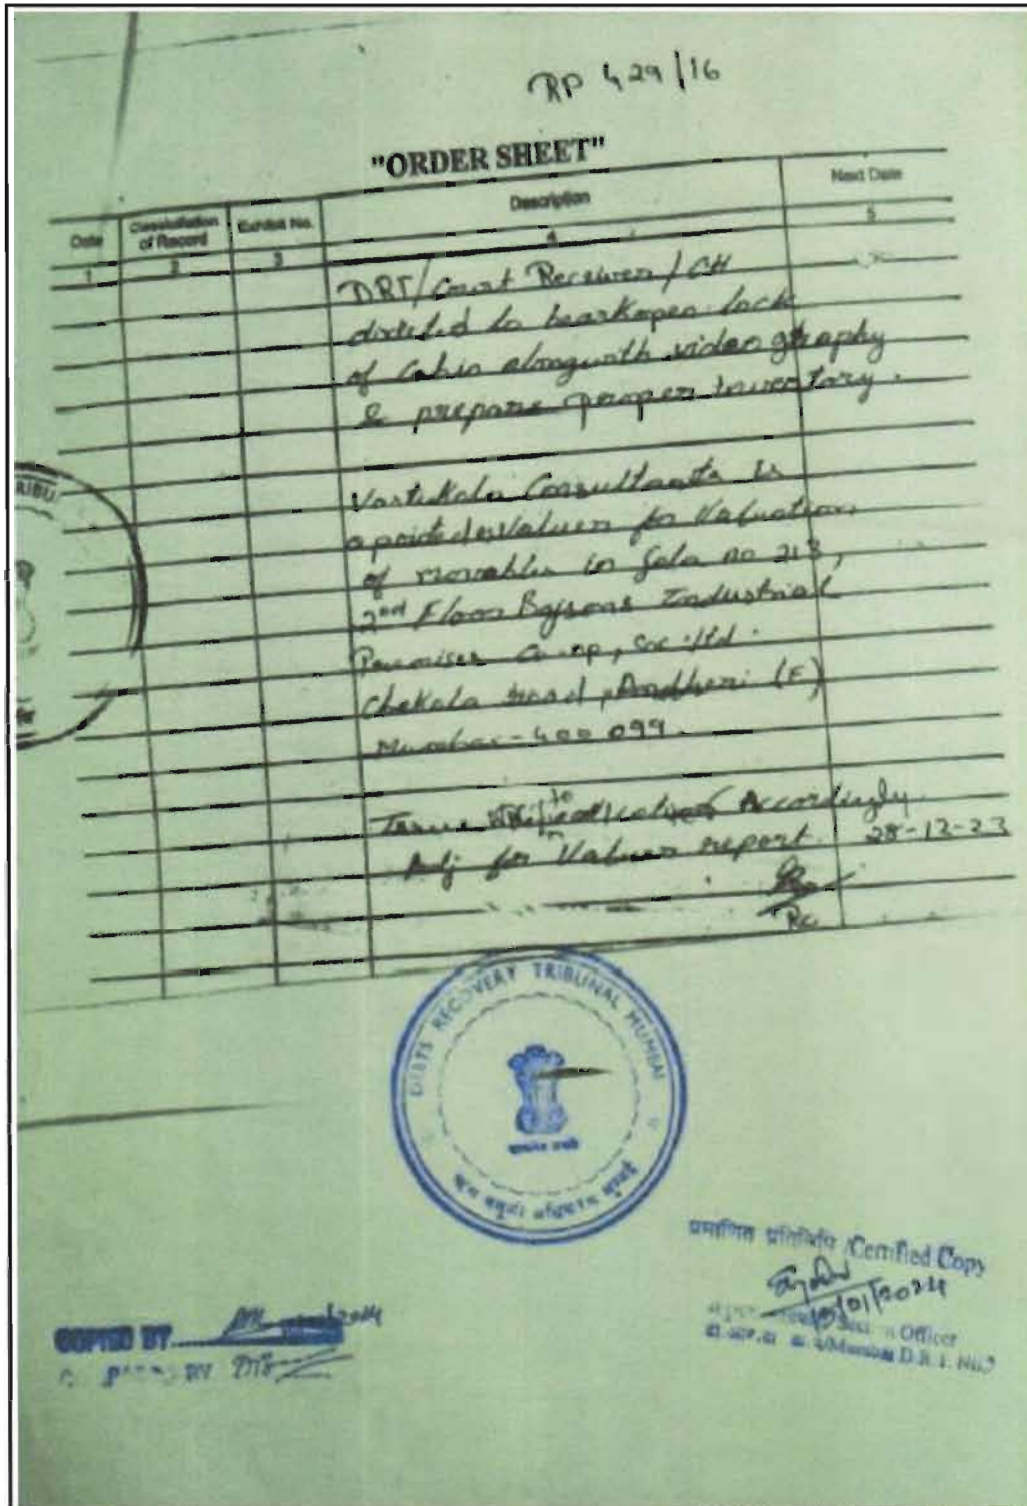 RP 429/16
"ORDER SHEET"
Date
Classification of Record
Exhibit No.
Description
Next Date
1
2
3
4
5
DRT/Court Receiver/CH
directed to break open lock
of Cabin alongwith video graphy
& prepare proper Inventory.
Vastukala Consultants is
Valuer for Valuation
of movables in Gala no 213,
2nd Floor Industrial
Premises Co-op, Soc. ltd.
Chakala Road, Andheri (E)
Mumbai-400 099.
Issue to Accordingly.
Adj for Valuer report. 28-12-23
DEBTS RECOVERY TRIBUNAL MUMBAI
सत्यमेव जयते
RIBU
प्रमाणित प्रतिलिपि /Certified Copy
/01/2024
Officer
Mumbai D.R.T. No.
COPIED BY
BY